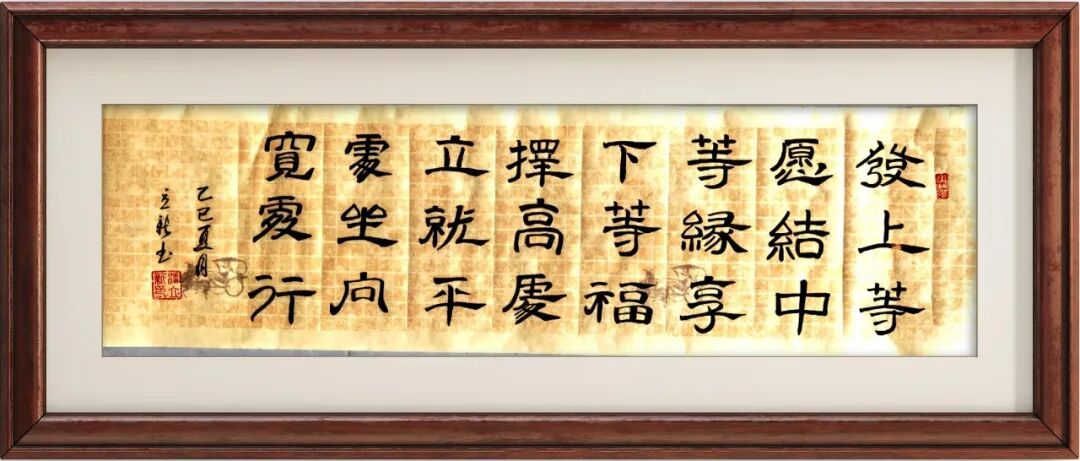 發上等
愿結中
等緣享
下等福
擇高處
立就平
處坐向
寬處行
乙巳夏月
立新书